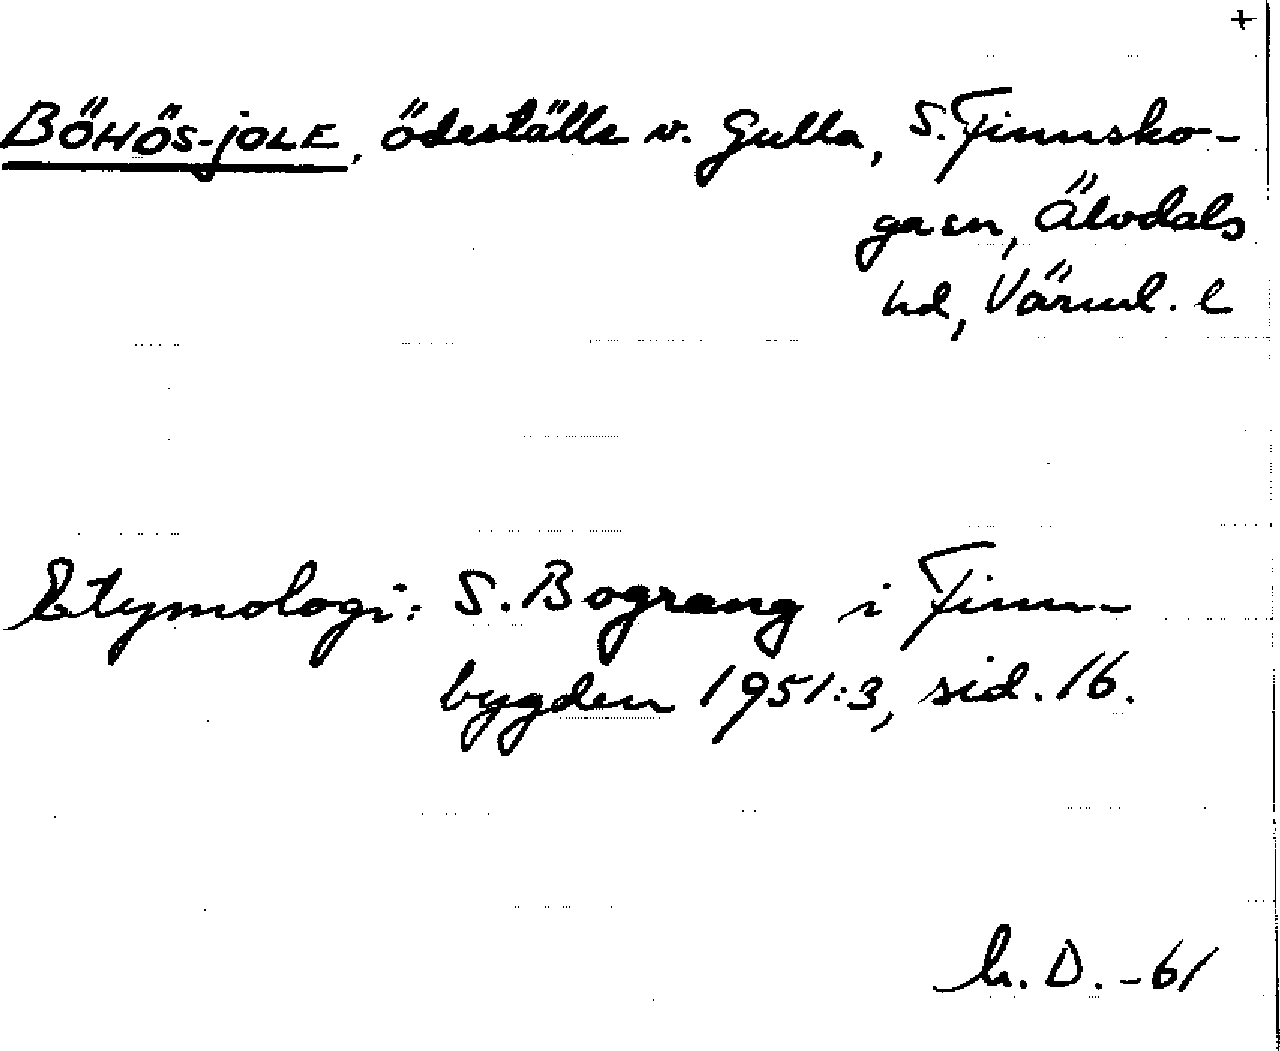 +
BÖHÖS-JOLE, ödeställe v. Gulla, S. Finnsko-
ga sn, Älvdals
hd, Värml. l
Etymologi: S. Bograng i Finn-
bygden 1951:3, sid. 16.
h. D. -61